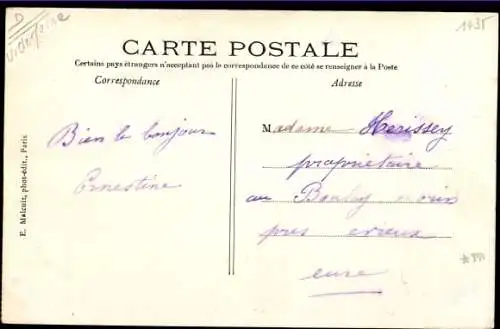 D
1435
CARTE POSTALE
Certains pays étrangers n'acceptant pas le correspondance de ce côté se renseigner à la Poste
Correspondance
Adresse
Bien le bonjour
Ernestine
Madame Herissey
propriétaire
au Boulay morin
pres evreux
eure
E. Malcuit, phot-édit., Paris